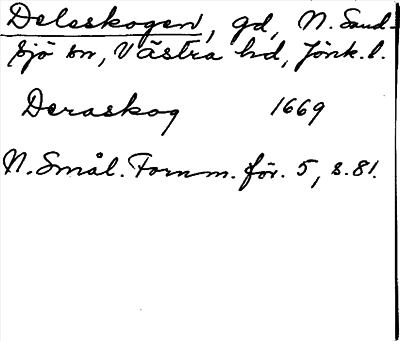 Delaskogen, gd, N. Sand-
sjö sn, Västra hd, Jönk. l.
Deraskog 1669
N. Smål. Fornm. för. 5, s. 81.